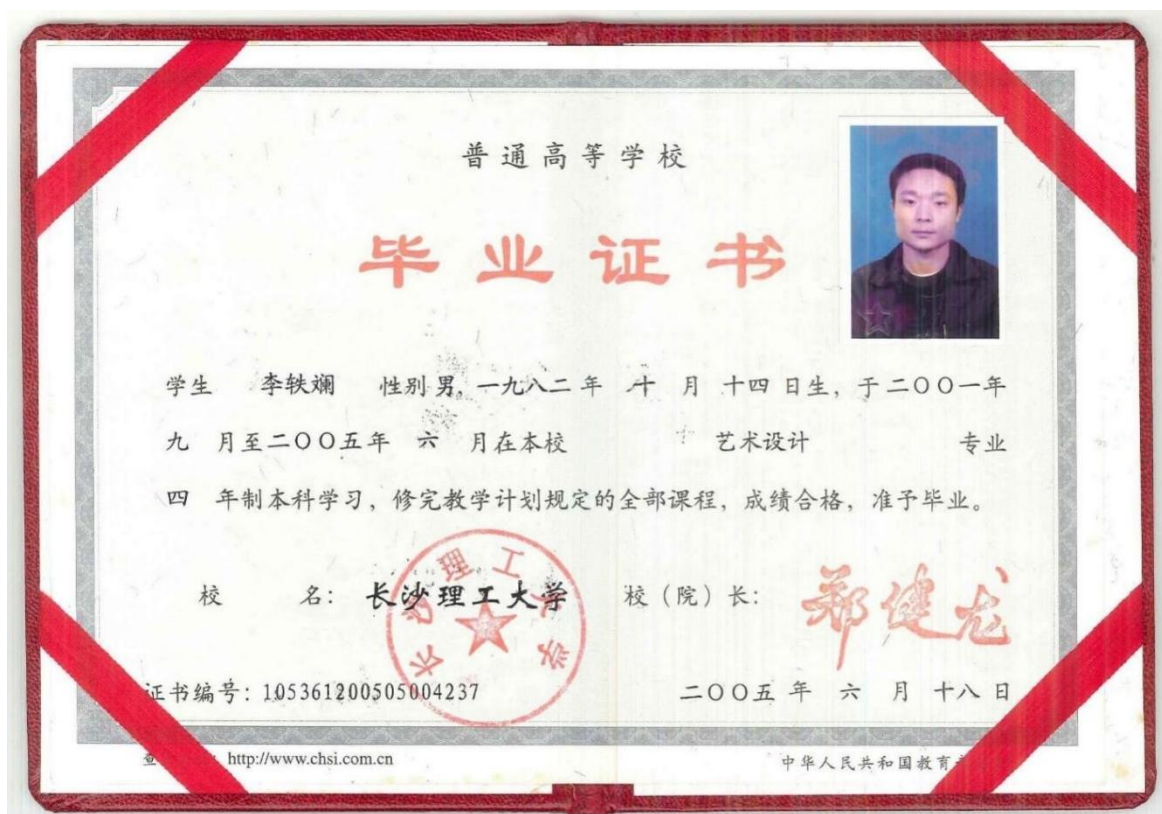 普通高等学校
毕业证书
学生 李轶斓 性别 男, 一九八二 年 十 月 十四 日生, 于二〇〇一年
九 月至二〇〇五年 六 月在本校 艺术设计 专业
四 年制本科学习, 修完教学计划规定的全部课程, 成绩合格, 准予毕业。
校 名: 长沙理工大学 校(院)长: 郑健龙
长沙理工大学
证书编号: 105361200505004237 二〇〇五 年 六 月 十八 日
查 http://www.chsi.com.cn 中华人民共和国教育